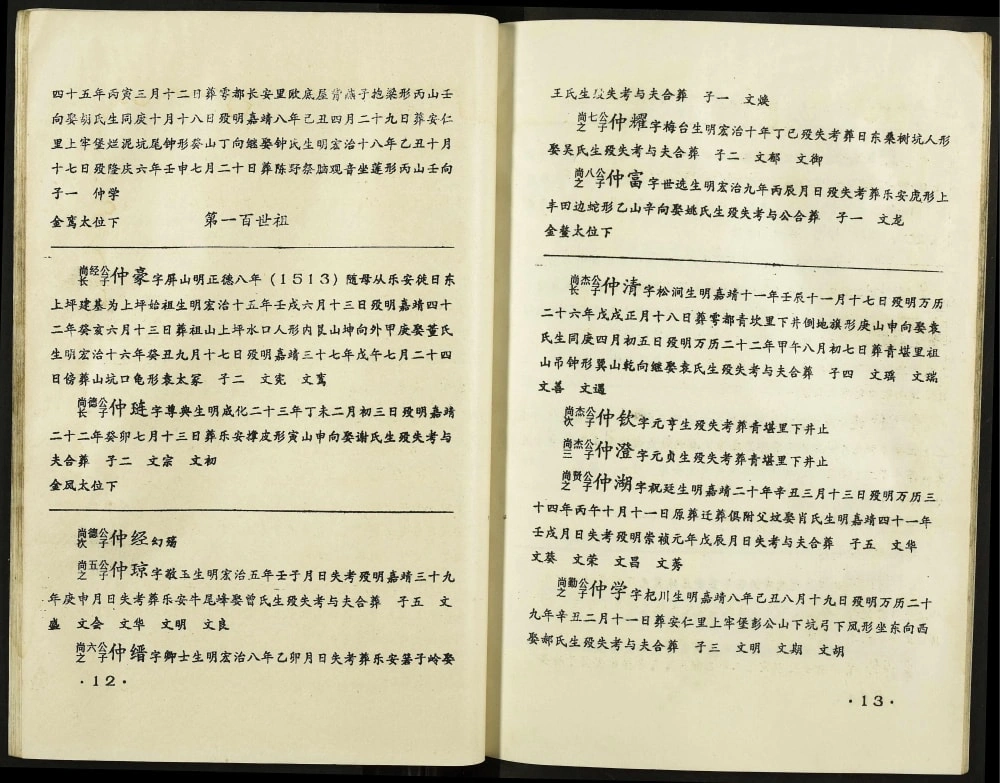 四十五年丙寅三月十二日葬雩都长安里欧底屋背燕子抱梁形丙山壬
向娶胡氏生同庚十月十八日殁明嘉靖八年己丑四月二十九日葬安仁
里上牢堡烂泥坑尾钟形癸山丁向继娶钟氏生明宏治十八年乙丑十月
十七日殁隆庆六年壬申七月二十日葬陈圩祭脑观音坐莲形丙山壬向
子一 仲学
金鸾太位下 第一百世祖
尚经公长子仲豪字屏山明正德八年(1513)随母从乐安徙日东
上坪建基为上坪始祖生明宏治十五年壬戌六月十三日殁明嘉靖四十
二年癸亥六月十三日葬祖山上坪水口人形内艮山坤向外甲庚娶董氏
生明宏治十六年癸丑九月十七日殁明嘉靖三十七年戊午七月二十四
日傍葬山坑口龟形袁太冢 子二 文宪 文鸾
尚德公长子仲琏字尊典生明成化二十三年丁未二月初三日殁明嘉靖
二十二年癸卯七月十三日葬乐安撑皮形寅山申向娶谢氏生殁失考与
夫合葬 子二 文宗 文初
金凤太位下
尚德公次子仲经幻殇
尚五公之子仲琼字敬玉生明宏治五年壬子月日失考殁明嘉靖三十九
年庚申月日失考葬乐安牛尾峰娶曾氏生殁失考与夫合葬 子五 文
盛 文会 文华 文明 文良
尚六公之子仲缙字卿士生明宏治八年乙卯月日失考葬乐安寨子岭娶
·12·
王氏生殁失考与夫合葬 子一 文焕
尚七公之子仲耀字梅台生明宏治十年丁巳殁失考葬日东桑树坑人形
娶吴氏生殁失考与夫合葬 子二 文郁 文御
尚八公之子仲富字世选生明宏治九年丙辰月日殁失考葬乐安虎形上
丰田边蛇形乙山辛向娶姚氏生殁失考与公合葬 子一 文龙
金鳌太位下
尚杰公长子仲清字松涧生明嘉靖十一年壬辰十一月十七日殁明万历
二十六年戊戌正月十八日葬雩都青坎里下井倒地旗形庚山申向娶袁
氏生同庚四月初五日殁明万历二十二年甲午八月初七日葬青堪里祖
山吊钟形巽山乾向继娶袁氏生殁失考与夫合葬 子四 文瑀 文瑞
文善 文遇
尚杰公次子仲钦字元亨生殁失考葬青堪里下井止
尚杰公三子仲澄字元贞生殁失考葬青堪里下井止
尚贤公之子仲湖字祝廷生明嘉靖二十年辛丑三月十三日殁明万历三
十四年丙午十月十一日原葬迁葬俱附父坟娶肖氏生明嘉靖四十一年
壬戌月日失考殁明崇祯元年戊辰月日失考与夫合葬 子五 文华
文葵 文荣 文昌 文芳
尚勤公之子仲学字杞川生明嘉靖八年己丑八月十九日殁明万历二十
九年辛丑二月十一日葬安仁里上牢堡彭公山下坑弓下凤形坐东向西
娶郝氏生殁失考与夫合葬 子三 文明 文期 文胡
·13·